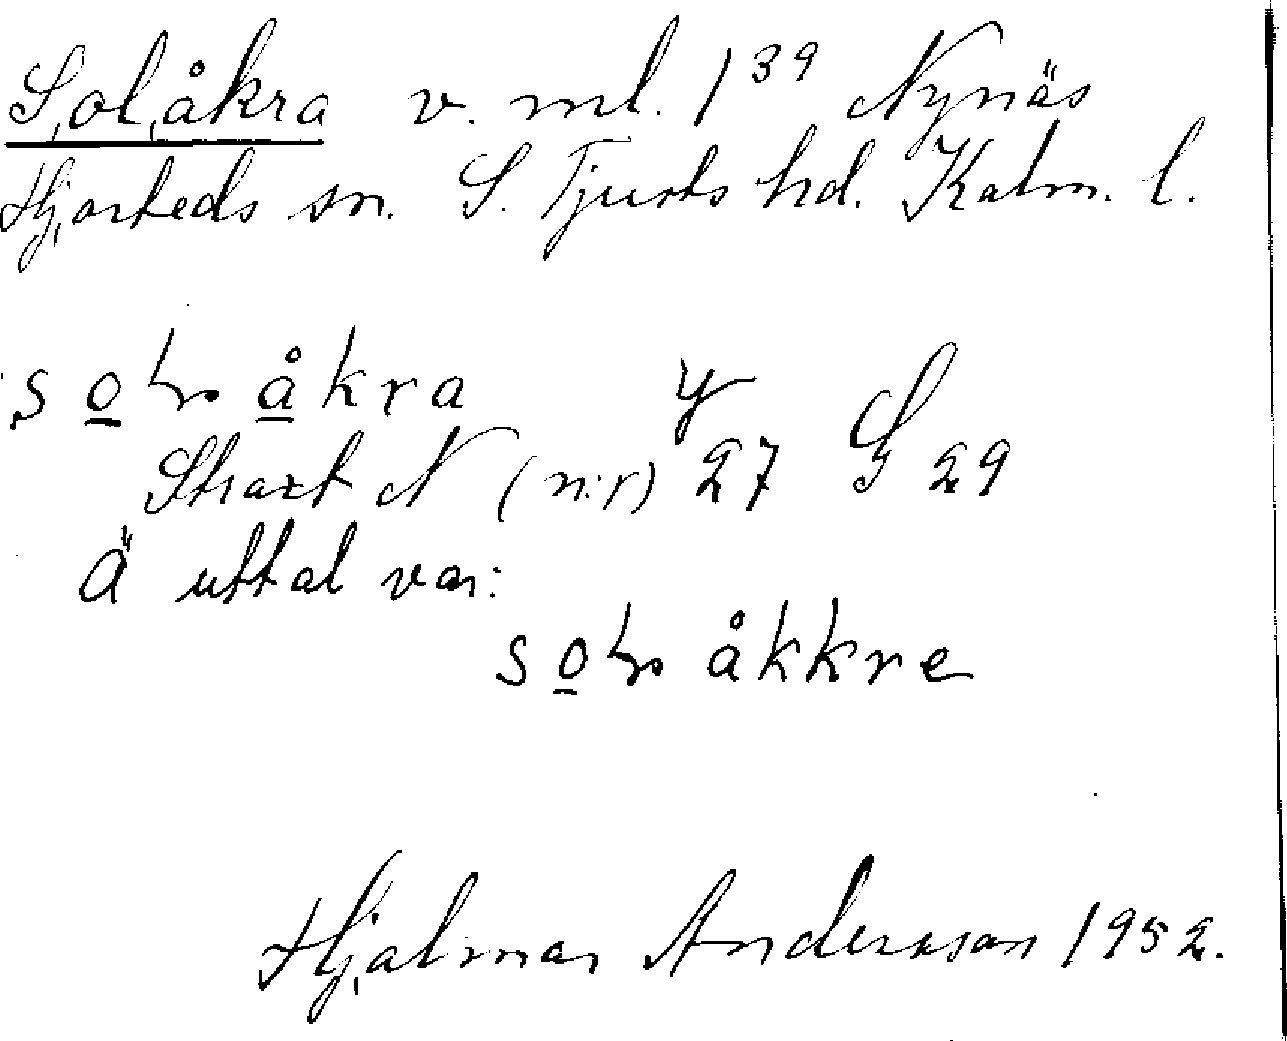 Solåkra v. ml. 1³⁹ Nynäs
Hjorteds sn. S. Tjusts hd. Kalm. l.
so åkra
Strax N (n:r) 27 S 29
Ä uttal var:
so åkkre
Hjalmar Andersson 1952.